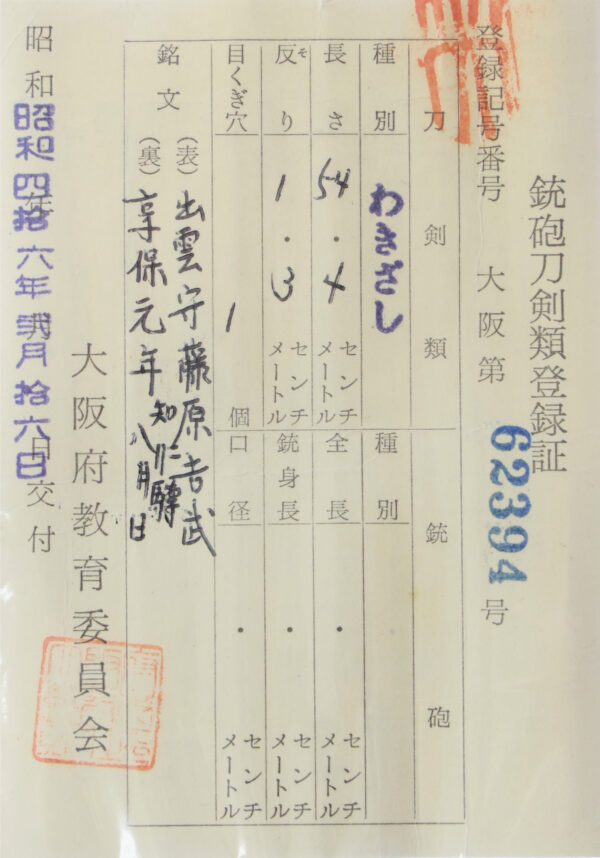 銃砲刀剣類登録証
登録記号番号 大阪第 62394 号
刀剣類
種別 わきざし
長さ 54.4 センチメートル
反り 1.3 センチメートル
そ
目くぎ穴 1 個
銘文 (表) 出雲守藤原吉武
(裏) 享保元年 八月日
銃砲
種別
全長 ・ センチメートル
銃身長 ・ センチメートル
口径 ・ センチメートル
大阪府教育委員会
昭和 年 月 日交付
昭和四拾六年弐月拾六日